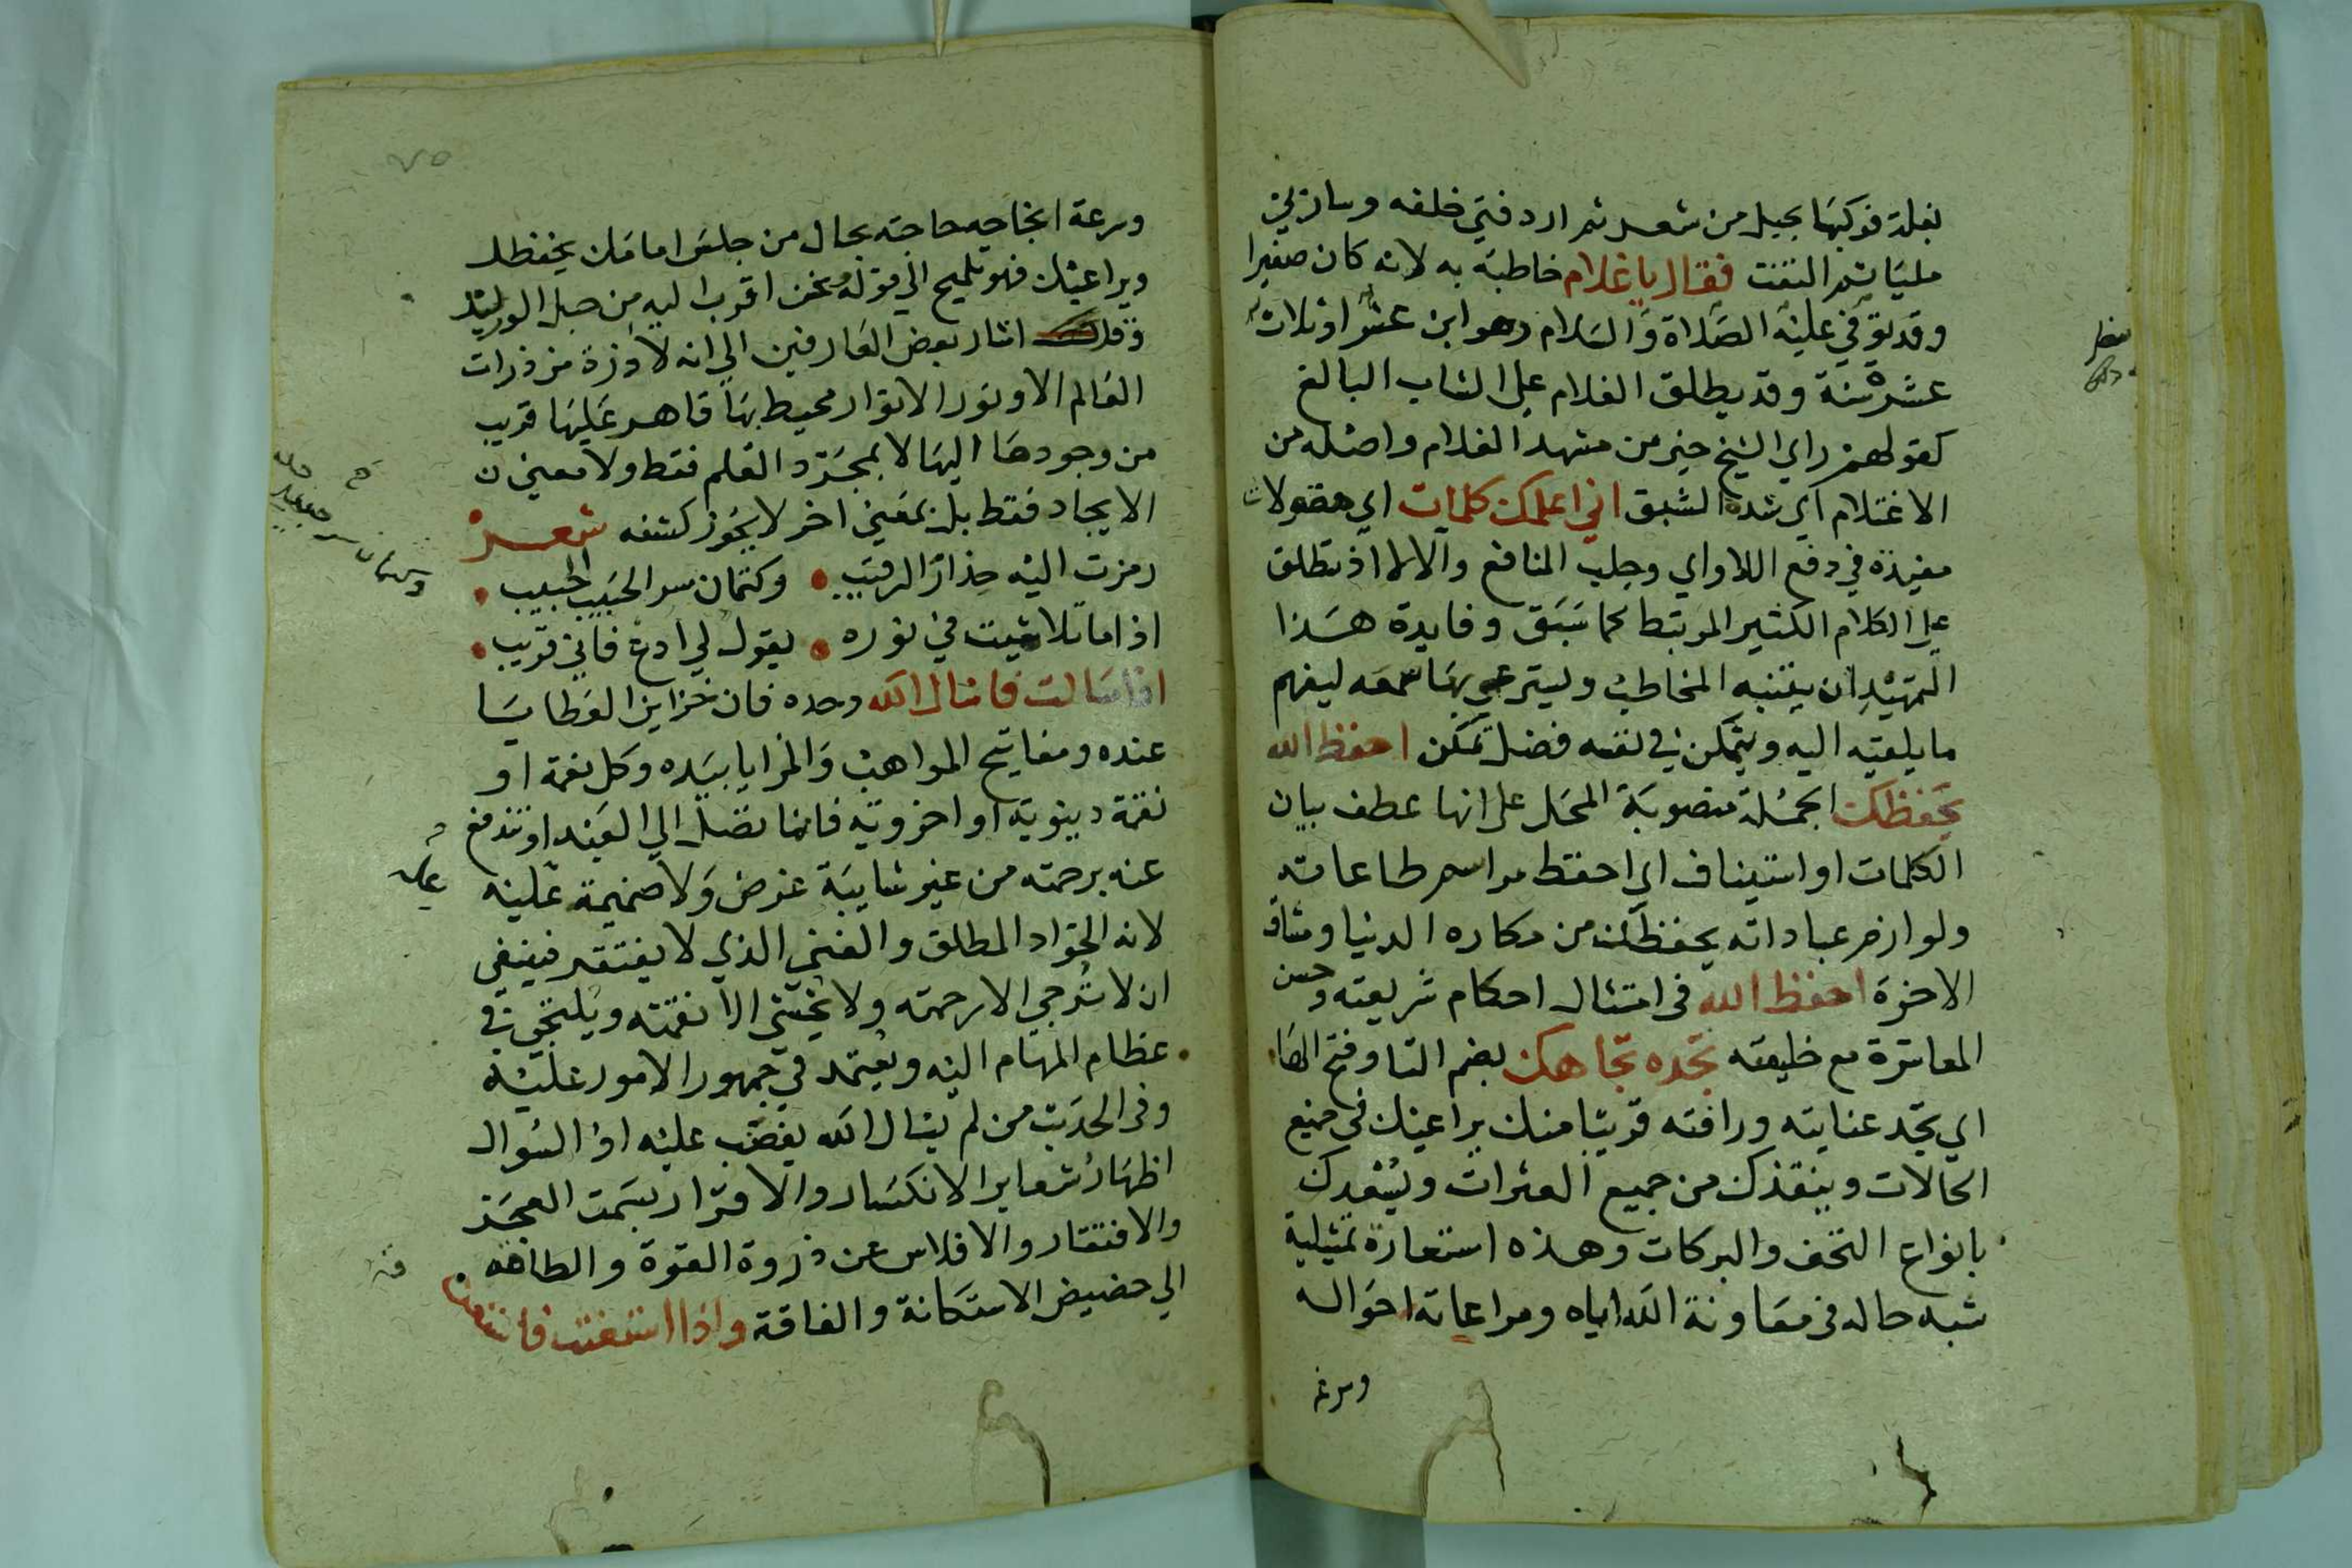 بغلة فركبها بحبل من شعر ثم اردفني خلفه وسار بي
مليا ثم التفت فقال يا غلام خاطبه به لانه كان صغيرا
وقد توفي عليه الصلاة والسلام وهو ابن عشر او ثلاث
عشرة سنة وقد يطلق الغلام على الشاب البالغ
كقولهم راي الشيخ خير من مشهد الغلام واصله من
الاغتلام اي شدة الشبق اني اعلمك كلمات اي مقولات
مفيدة في دفع اللاواي وجلب المنافع والالا اذ تطلق
على الكلام الكثير المرتبط كما سبق وفايدة هذا
التمهيد ان يتنبه المخاطب وليسترعي بها سمعه ليفهم
ما يلقيه اليه ويتمكن في نفسه فضل تمكن احفظ الله
يحفظك الجملة منصوبة المحل على انها عطف بيان
الكلمات او استيناف اي احفظ مراسم طاعاته
ولوازم عباداته يحفظك من مكاره الدنيا ومشاق
الاخرة احفظ الله في امتثال احكام شريعته وحسن
المعاشرة مع خليقته تجده تجاهك بضم التا وفتح الها
اي تجد عنايته ورافته قريبا منك يراعيك في جميع
الحالات وينقذك من جميع العثرات ويسعدك
بانواع التحف والبركات وهذه استعارة تمثيلية
شبه حاله في معاونة الله اياه ومراعاته احواله
وسرعة
٧٥
وسرعة انجاحه حاجته بحال من جلس امامك يحفظك
ويراعيك فهو تلميح الى قوله ونحن اقرب اليه من حبل الوريد
اشار بعض العارفين الى انه لا ذرة من ذرات
العالم الا ونور الانوار محيط بها قاهر عليها قريب
من وجودها اليها لا بمجرد العلم فقط ولا معنى
الايجاد فقط بل بمعنى اخر لا يجوز كشفه شعر
رمزت اليه حذار الرقيب • وكتمان سر الحبيب الحبيب •
اذا ما تلاشيت في نوره • يقول لي ادع فاني قريب •
اذا سالت فاسال الله وحده فان خزاين العطايا
عنده ومفاتيح المواهب والمزايا بيده وكل نعمة او
نقمة دينوية او اخروية فانما تصل الى العبد او تندفع
عنه برحمته من غير شايبة غرض ولا ضميمة علية
لانه الجواد المطلق والغني الذي لا يفتقر فينبغي
ان لا يرجى الا رحمته ولا يخشى الا نقمته ويلتجي في
عظام المهام اليه ويعتمد في جمهور الامور عليه
وفي الحديث من لم يسال الله يغضب عليه اذ السوال
اظهار شعاير الانكسار والاقرار بسمت العجز
والافتقار والافلاس عن ذروة القوة والطاقة
الى حضيض الاستكانة والفاقة واذا استعنت فاستعن